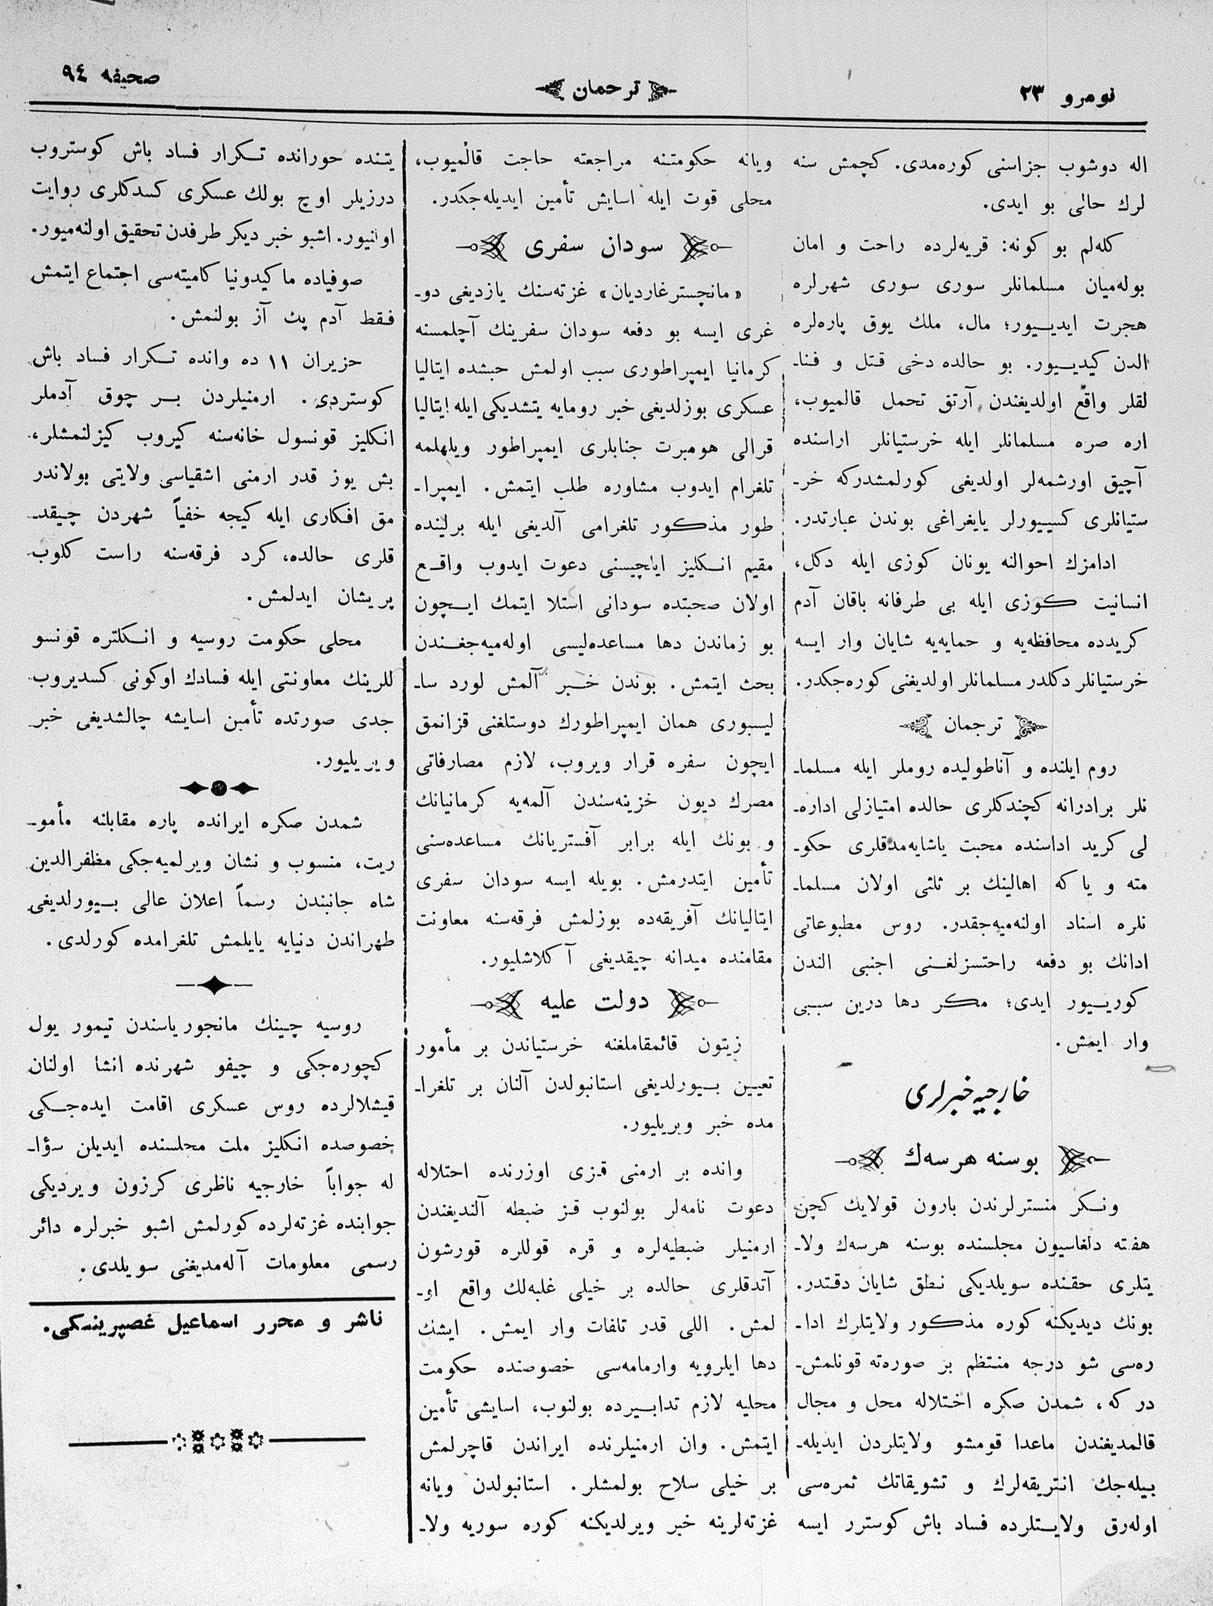 نومرو ٢٣
ترجمان
صحیفه ٩٤
اله دوشوب جزاسنی کوره‌مدی. کچمش سنه
لرك حالی بو ایدی.
کله‌لم بو کونه: قریه‌لرده راحت و امان
بوله‌میان مسلمانلر سوری سوری شهرلره
هجرت ایدیـیور؛ مال، ملك یوق پاره‌لره
الدن کیدیـیور. بو حالده دخی قتل و فنا۔
لقلر واقع اولدیغندن آرتق تحمل قالمیوب،
اره صره مسلمانلر ایله خرستیانلر اراسنده
آچیق اورشمه‌لر اولدیغی کورلمشدرکه خر۔
ستیانلری کسییورلر یایغراغی بوندن عبارتدر.
ادامزك احوالنه یونان کوزی ایله دکل،
انسانیت کوزی ایله بی طرفانه باقان آدم
کریدده محافظه‌یه و حمایه‌یه شایان وار ایسه
خرستیانلر دکلدر مسلمانلر اولدیغنی کوره‌جکدر.
ترجمان
روم ایلنده و آناطولیده روملر ایله مسلما۔
نلر برادرانه کچندکلری حالده امتیازلی اداره۔
لی کرید اداسنده محبت یاشایه‌مدقلری حکو۔
مته و یا که اهالینك بر ثلثی اولان مسلما۔
نلره اسناد اولنه‌میه‌جقدر. روس مطبوعاتی
ادانك بو دفعه راحتسزلغـنی اجنبی الندن
کوریـیور ایدی؛ مکر دها درین سببی
وار ایمش.
خارجیه خبرلری
بوسنه هرسه‌ك
ونـکر منسترلرندن بارون قولایك کچن
هفته دلغاسیون مجلسنده بوسنه هرسه‌ك ولا۔
یتلری حقنده سویلدیکی نطق شایان دقتدر.
بونك دیدیکنه کوره مذکور ولایتلرك ادا۔
ره‌سی شو درجه منتظم بر صورته قونلمش۔
در که، شمدن صکره اختلاله محل و مجال
قالمدیغندن ماعدا قومشو ولایتلردن ایدیله۔
بیله‌جك انتریقه‌لرك و تشویقاتك ثمره‌سی
اوله‌رق ولایـتلرده فساد باش کوسترر ایسه
ویانه حکومتنه مراجعته حاجت قالمیوب،
محلی قوت ایله اسایش تأمین ایدیله‌جکدر.
سودان سفری
«مانچستر غاردیان» غزته‌سنك یازدیغی دو۔
غری ایسه بو دفعه سودان سفرینك آچلمسنه
کرمانیا ایمپراطوری سبب اولمش حبشده ایتالیا
عسکری بوزلدیغی خبر رومایه یتشدیکی ایله ایتالیا
قرالی هومبرت جنابلری ایمپراطور ویلهلمه
تلغرام ایدوب مشاوره طلب ایتمش. ایمپرا۔
طور مذکور تلغرامی آلدیغی ایله برلینده
مقیم انـکلیز ایلچیسنی دعوت ایدوب واقـع
اولان صحبتده سودانی استلا ایتمك ایـچون
بو زماندن دها مساعده‌لیسی اوله‌میه‌جغـندن
بحث ایتمش. بوندن خبر آلمش لورد سا۔
لیسبوری همان ایمپراطورك دوستلغنی قزانمق
ایچون سفره قرار ویروب، لازم مصارفاتی
مصرك دیون خزینه‌سندن آلمه‌یه کرمانیانك
و بونك ایله برابر آفستریانك مساعده‌سنی
تأمین ایتدرمش. بویله ایسه سودان سفری
ایتالیانك آفریقه‌ده بوزلمش فرقه‌سنه معاونت
مقامنده میدانه چیقدیغی آکلاشلیور.
دولت علیه
زیتون قائمقاملغنه خرستیاندن بر مأمور
تعیین بـیورلدیغی استانبولدن آلنان بر تلغرا۔
مده خبر ویریلیور.
وانده بر ارمنی قزی اوزرنده احتلاله
دعوت نامه‌لر بولنوب قـز ضبطه آلندیغندن
ارمنیلر ضبطیه‌لره و قره قوللره قورشون
آتدقلری حالده بر خیلی غلبه‌لك واقع او۔
لمش. اللی قدر تلفات وار ایمش. ایشك
دها ایلرویه وارمامه‌سی خصوصنده حکومت
محلیه لازم تدابـیرده بولنوب، اسایشی تأمین
ایتمش. وان ارمنیلرنده ایراندن قاچرلمش
بر خیلی سلاح بولمشلر. استانبولدن ویانه
غزته‌لرینه خبر ویرلدیکنه کوره سوریه ولا۔
یتنده حورانده تـکرار فساد باش کوستروب
درزیلر اوچ بولك عسکری کسدکلری روایت
اولنیور. اشبو خبر دیکر طرفدن تحقیق اولنه‌میور.
صوفیاده ماکیدونیا کامیته‌سی اجتماع ایتمش
فقط آدم پك آز بولنمش.
حزیران ١١ ده وانده تـکرار فساد باش
کوستردی. ارمنیلردن بـر چوق آدملر
انکلیز قونسول خانه‌سنه کیروب کیزلنمشلر،
بش یوز قدر ارمنی اشقیاسی ولایتی بولاندر
مق افکاری ایله کیجه خفیاً شهردن چیقد۔
قلری حالده، کرد فرقه‌سنه راست کلوب
پریشان ایدلمش.
محلی حکومت روسیه و انـکلتره قونسو
للرینك معاونتی ایله فسادك اوکونی کسدیروب
جدی صورتده تأمین اسایشه چالشدیغی خبر
ویریلیور.
شمدن صکره ایرانده پاره مقابلنه مأمو۔
ریت، منسوب و نشان ویرلمیه‌جکی مظفرالدین
شاه جانبندن رسماً اعلان عالی بـیورلدیغی
طهراندن دنیایه یایلمش تلغرامده کورلدی.
روسیه چـینك مانجوریاسندن تیمور یول
کچوره‌جکی و چیفو شهرنده انشا اولنان
قیشلالرده روس عسکری اقامت ایده‌جـکی
خصوصده انکلیز ملت مجلسنده ایدیلن سؤا۔
له جواباً خارجیه ناظری کرزون ویردیکی
جوابنده غزته‌لرده کورلمش اشبو خبرلره دائر
رسمی معلومات آله‌مدیغنی سویلدی.
ناشر و محرر اسماعیل غصپرینسکی.